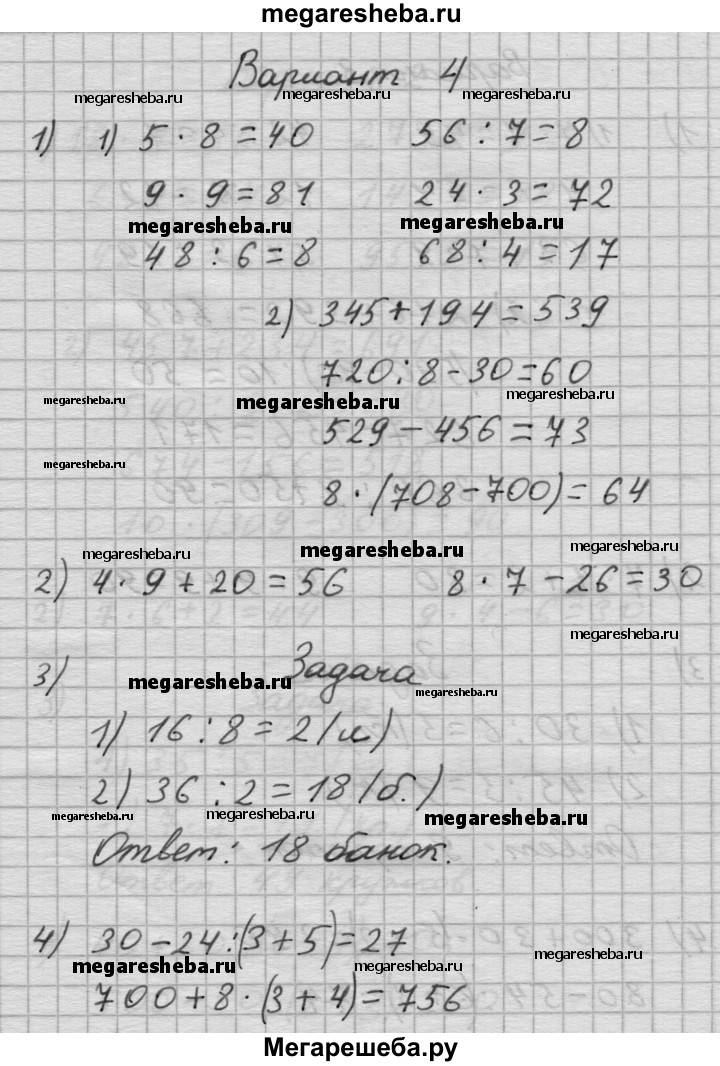 megaresheba.ru
Вариант 4
megaresheba.ru megaresheba.ru megaresheba.ru
1) 1) 5 · 8 = 40 56 : 7 = 8
9 · 9 = 81 24 · 3 = 72
megaresheba.ru megaresheba.ru
48 : 6 = 8 68 : 4 = 17
2) 345 + 194 = 539
720 : 8 - 30 = 60
megaresheba.ru megaresheba.ru megaresheba.ru
529 - 456 = 73
megaresheba.ru
8 · (708 - 700) = 64
megaresheba.ru megaresheba.ru megaresheba.ru
2) 4 · 9 + 20 = 56 8 · 7 - 26 = 30
megaresheba.ru
3) Задача
megaresheba.ru megaresheba.ru
1) 16 : 8 = 2 (л)
2) 36 : 2 = 18 (б.)
megaresheba.ru megaresheba.ru megaresheba.ru
Ответ: 18 банок.
4) 30 - 24 : (3 + 5) = 27
megaresheba.ru megaresheba.ru megaresheba.ru
700 + 8 · (3 + 4) = 756
Мегарешеба.ру